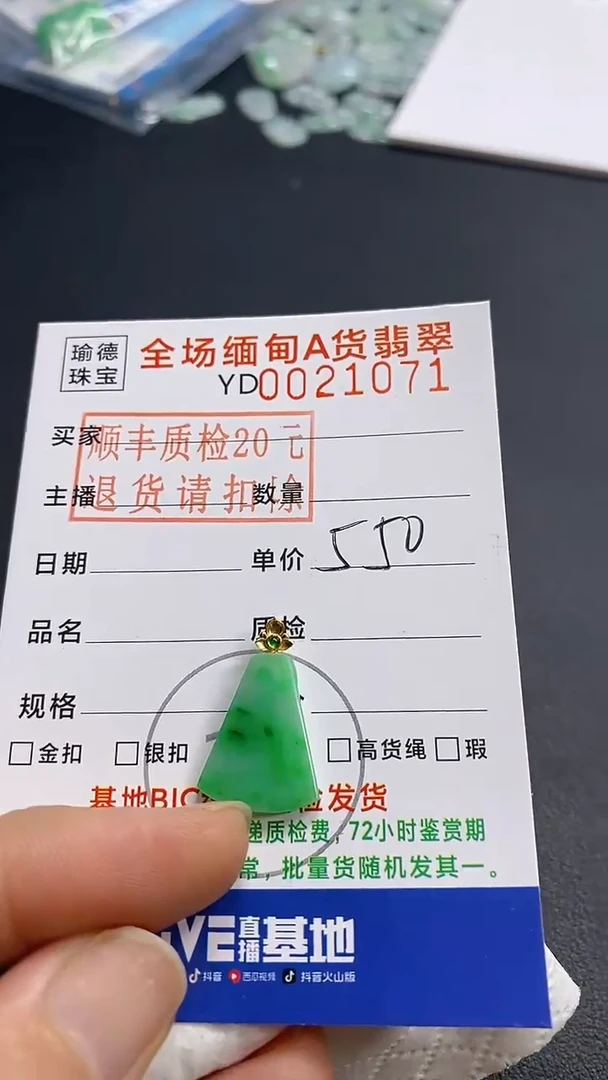 瑜德
珠宝
全场缅甸A货翡翠
YD0021071
买家
顺丰质检20元
主播
退货请扣除
数量
日期
单价 550
品名
质检
规格
金扣 银扣 高货绳 瑕
基地BIC
检发货
递质检费，72小时鉴赏期
常，批量货随机发其一。
直播基地
抖音 西瓜视频 抖音火山版